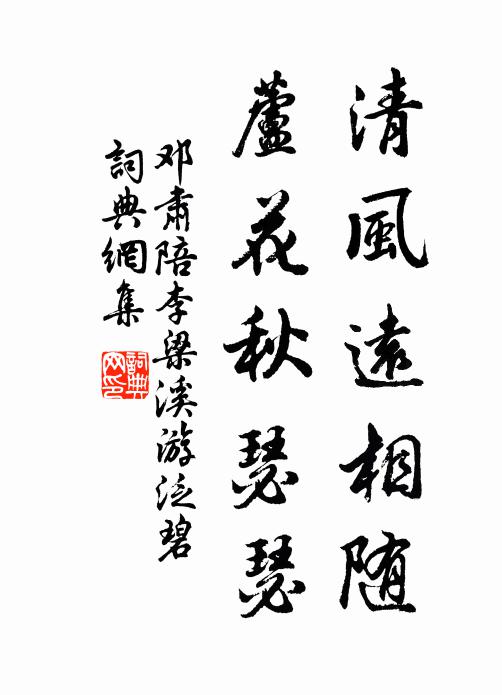 清風遠相随
蘆花秋瑟瑟
邓肅陪李梁溪游泛碧
詞典網集
詞典網印